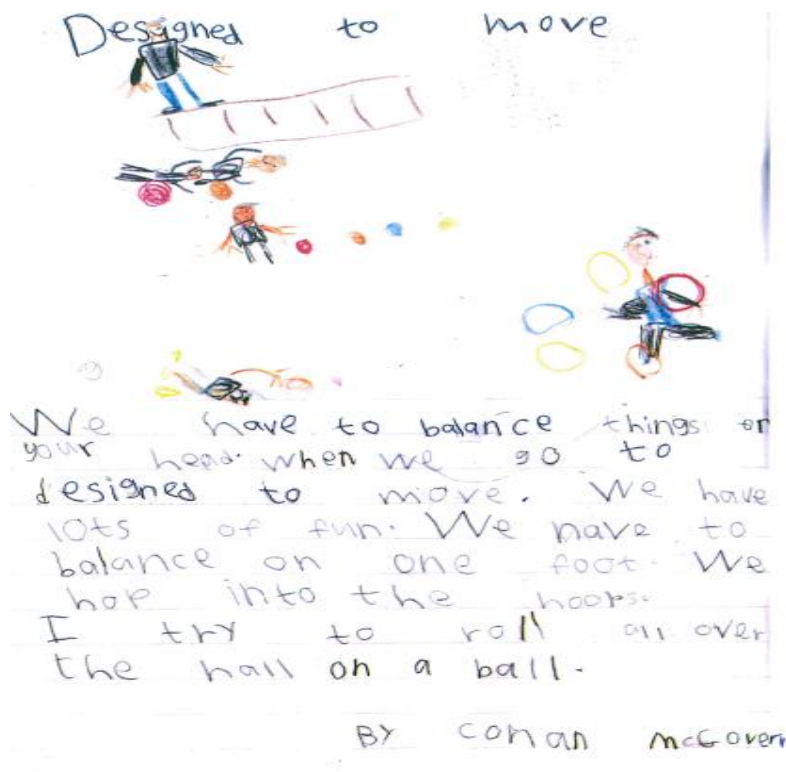 Designed to move
We have to balance things on
your head. when we go to
designed to move. We have
lots of fun. We have to
balance on one foot. We
hop into the hoops.
I try to roll all over
the hall on a ball.
BY Conan McGovern